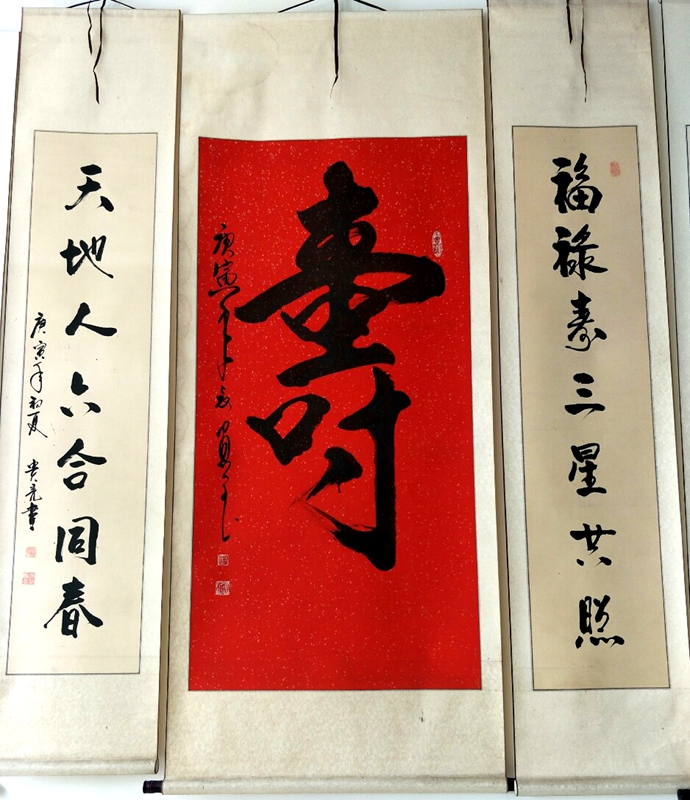 福禄寿三星共照
壽
庚寅年
天地人六合同春
庚寅年初夏 贵亮書